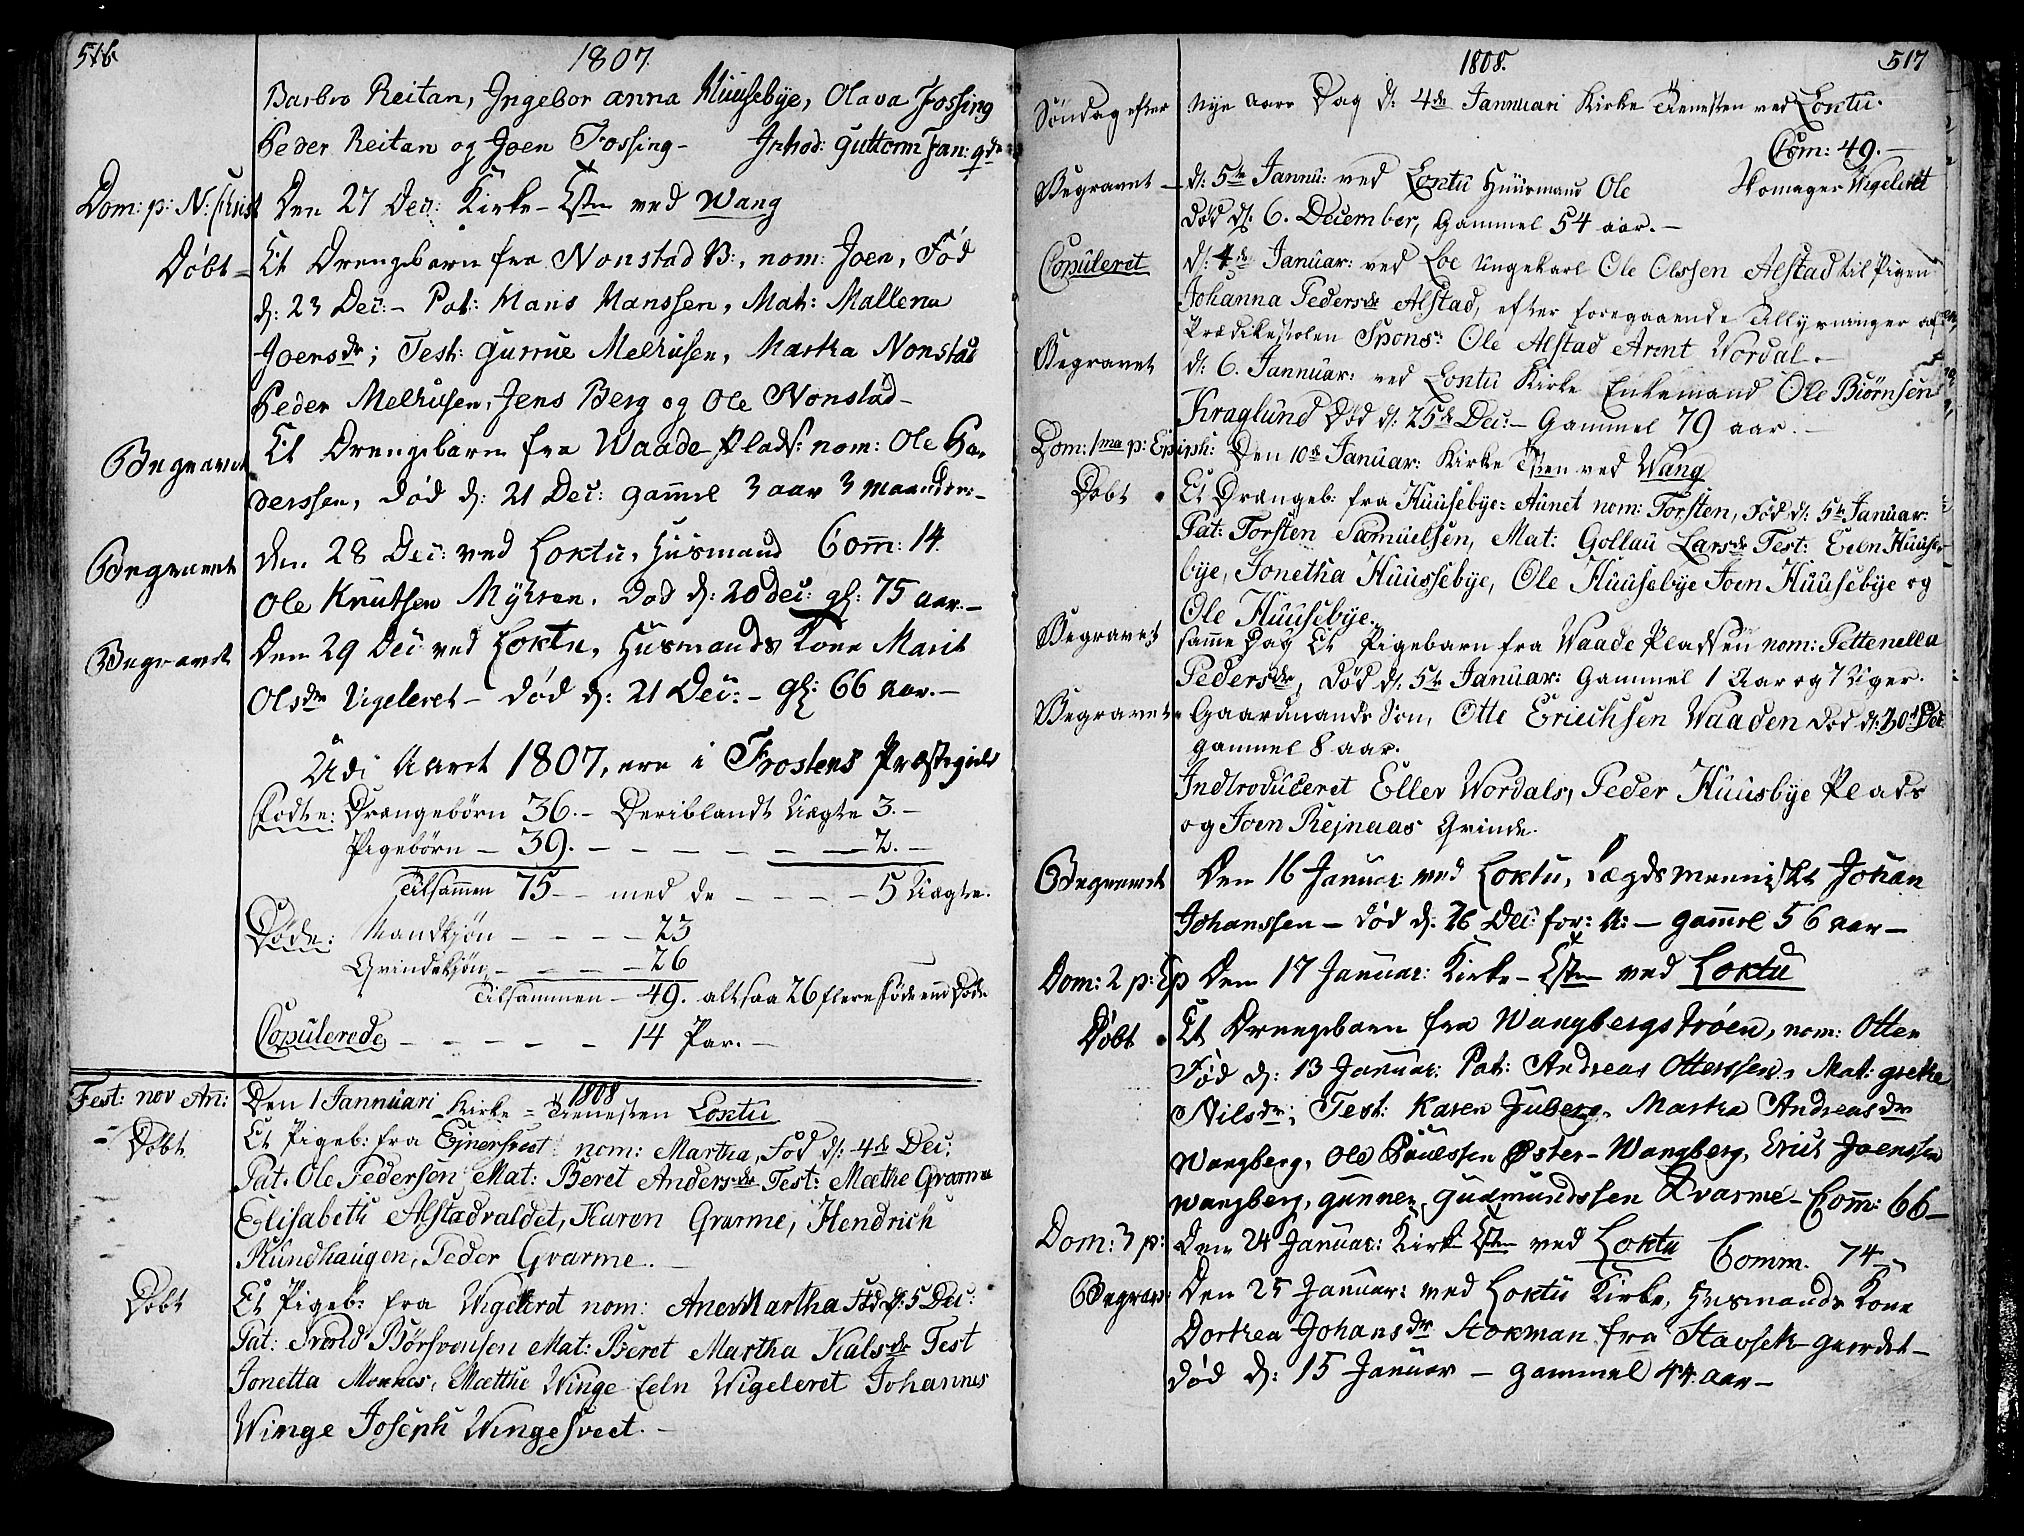 516
1807
Barbro Reitan, Ingebor anna Huusebÿe, Olava Fossing
Peder Reitan og Joen Fossing - Inhod: Guttorm Fan: qde
Dom: p: N: Christ Den 27 Dec: Kirke-Tsten ved Wang
Døbt - Et Drengebarn fra Nonstad B:, nom: Joen, Fød
d: 23 Dec: - Pat: Hans Hanssen, Mat: Mallena
Joensdr; Test: Gurrue Melhusen, Martha Nonstad
Peder Melhusen, Jens Berg og Ole Nonstad -
Begravet Et Drengebarn fra Waade Plads: nom: Ole
derssen, død d: 21 Dec: gamel 3 aar 3 maander -
Begravet den 28 Dec: ved Loktu, Husmand Comm: 14.
Ole Knutsen Myhren. død d: 20 Dec: gl: 75 aar. -
Begravet Den 29 Dec ved Loktu, Husmands Kone Marit
Olsdr Vigeleret - død d: 21 Dec: - gl: 66 aar. -
Udi Aaret 1807, ere i Frostens Præstegield
Fødte: Drængebörn 36. - Deriblandt Uægte 3. -
Pigebörn - 39. - - - - - - 2. -
Tilsammen 75 - - med de - - - - 5 Uægte.
Døde: Mandkjøn - - - - 23
Qvindekjön - - - - 26
Tilsammen - 49. altsaa 26 flere føde end Døde
Copulerede - - - - - 14 Par. -
1808
Fest: nov An: Den 1 Jannuari Kirke = Tienesten Loktu
Døbt Et Pigeb: fra Ejnersvest nom: Martha, Fød d: 4de Dec:
Pat. Ole Pedersen Mat: Beret Andersdr Test: Mæthe Qvarme
Elisabeth Alstadvaldet, Karen Qvarme, Hendrich
Rundhaugen, Peder Qvarme. -
Døbt Et Pigeb: fra Wigeleret nom: Ane Martha Fød d: 5 Dec:
Pat: Børsvensen Mat: Beret Martha Kalsdr Test
Jonetta Monkes, Mættue Winge Eeln Wigeleret Johannes
Winge Joseph Wingesveet. -
1808. 517
Søndag efter Nye Aars Dag d: 4de Jannuari Kirke Tienesten ved Loktu.
Com: 49. -
Begravet - d: 5te Jannu: ved Loktu Huusmand Ole Skomager Wigelrett
død d: 6. December, Gammel 54 aar. -
Copuleret d: 4de Januar: ved Loe Ungekarl Ole Olssen Alstad til Pigen
Johanna Pedersdr Alstad, efter foregaaende Tillysninger af
Prædikestolen Spons: Ole Alstad Arent Wordal. -
Begravet d: 6. Jannuar: ved Loktu Kirke Enkemand Ole Biørnsen
Kraglund Død d: 25de Dec: - Gammel 79 aar. -
Dom: 1ma p: Epiph: Den 10de Januar: Kirke Tsten ved Wang
Døbt Et Drængeb: fra Huusebye= Aunet nom: Torsten, Fød d: 5te Januar:
Pat: Torsten Samuelsen, Mat: Gollau Larsdr Test: Eeln Huuse-
bye, Jonetha Huussebye, Ole Huusebye Joen Huusebye og
Ole Huusebye.
Begravet samme Dag Et Pigebarn fra Waade Pladsen nom: Pettenella
Pedersdr, Død d: 5te Januar: Gammel 1 Aar og 7 Uger.
Begravet Gaardmands Søn, Otte Erichsen Waaden død d: 30te Dec:
gammel 8 aar.
Indtroduceret Ellev Wordals, Peder Huusbye Plads
og Joen Rejnaas Qvinde.
Begravet Den 16 Januar: ved Loktu, Lægdsmenniske Johan
Johanssen - død d: 26 Dec: for: A: - gammel 56 aar -
Dom: 2 p: Ep Den 17 Januar: Kirke-Tsten ved Loktu
Døbt Et Drengebarn fra Wangbergstrøen, nom: Otter
Fød d: 13 Januar: Pat: Andreas Otterssen, Mat: Grethe
Nilsdr; Test: Karen Juberg, Martha Andreasdr
Wangberg, Ole Paulssen Øster-Wangberg, Erick Joenssen
Wangberg, Gunner Gudmundssen Kvarme - Comm: 66 -
Dom: 3 p: Den 24 Januar: Kirk Tsten ved Loktu Comm. 74 -
Begrav: Den 25 Januar: ved Loktu Kirke, Husmands Kone
Dorthea Johansdr Stokman fra Stavsek gaerdet -
død d: 15 Januar - gammel 44 aar -